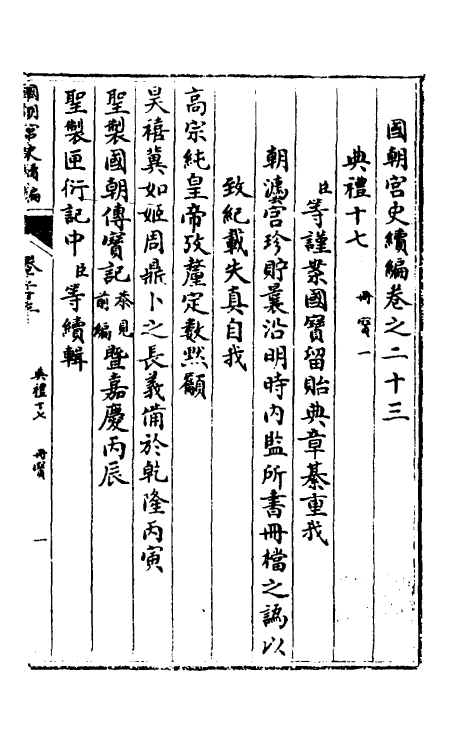 國朝宮史續編卷之二十三
典禮十七 冊寶一
臣等謹案國寶留貽典章綦重我
朝瀍宮珍貯曩沿明時內監所書冊檔之譌以
致紀載失真自我
高宗純皇帝攷釐定數默籲
昊禧冀如姬周鼎卜之長義備於乾隆丙寅
聖製國朝傳寶記恭見前編暨嘉慶丙辰
聖製匣衍記中臣等續輯
國朝宮史續編 卷二十三 典禮十七 冊寶 一